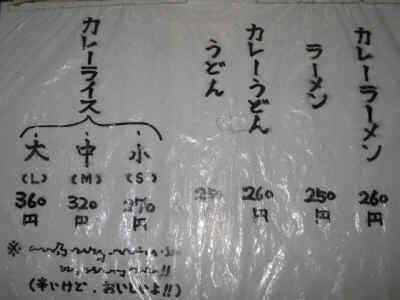 カレーラーメン
260円
ラーメン
250円
カレーうどん
260円
うどん
カレーライス
大 中 小
(L) (M) (S)
360円 320円 270円
※
(辛いけど、おいしいよ!!)